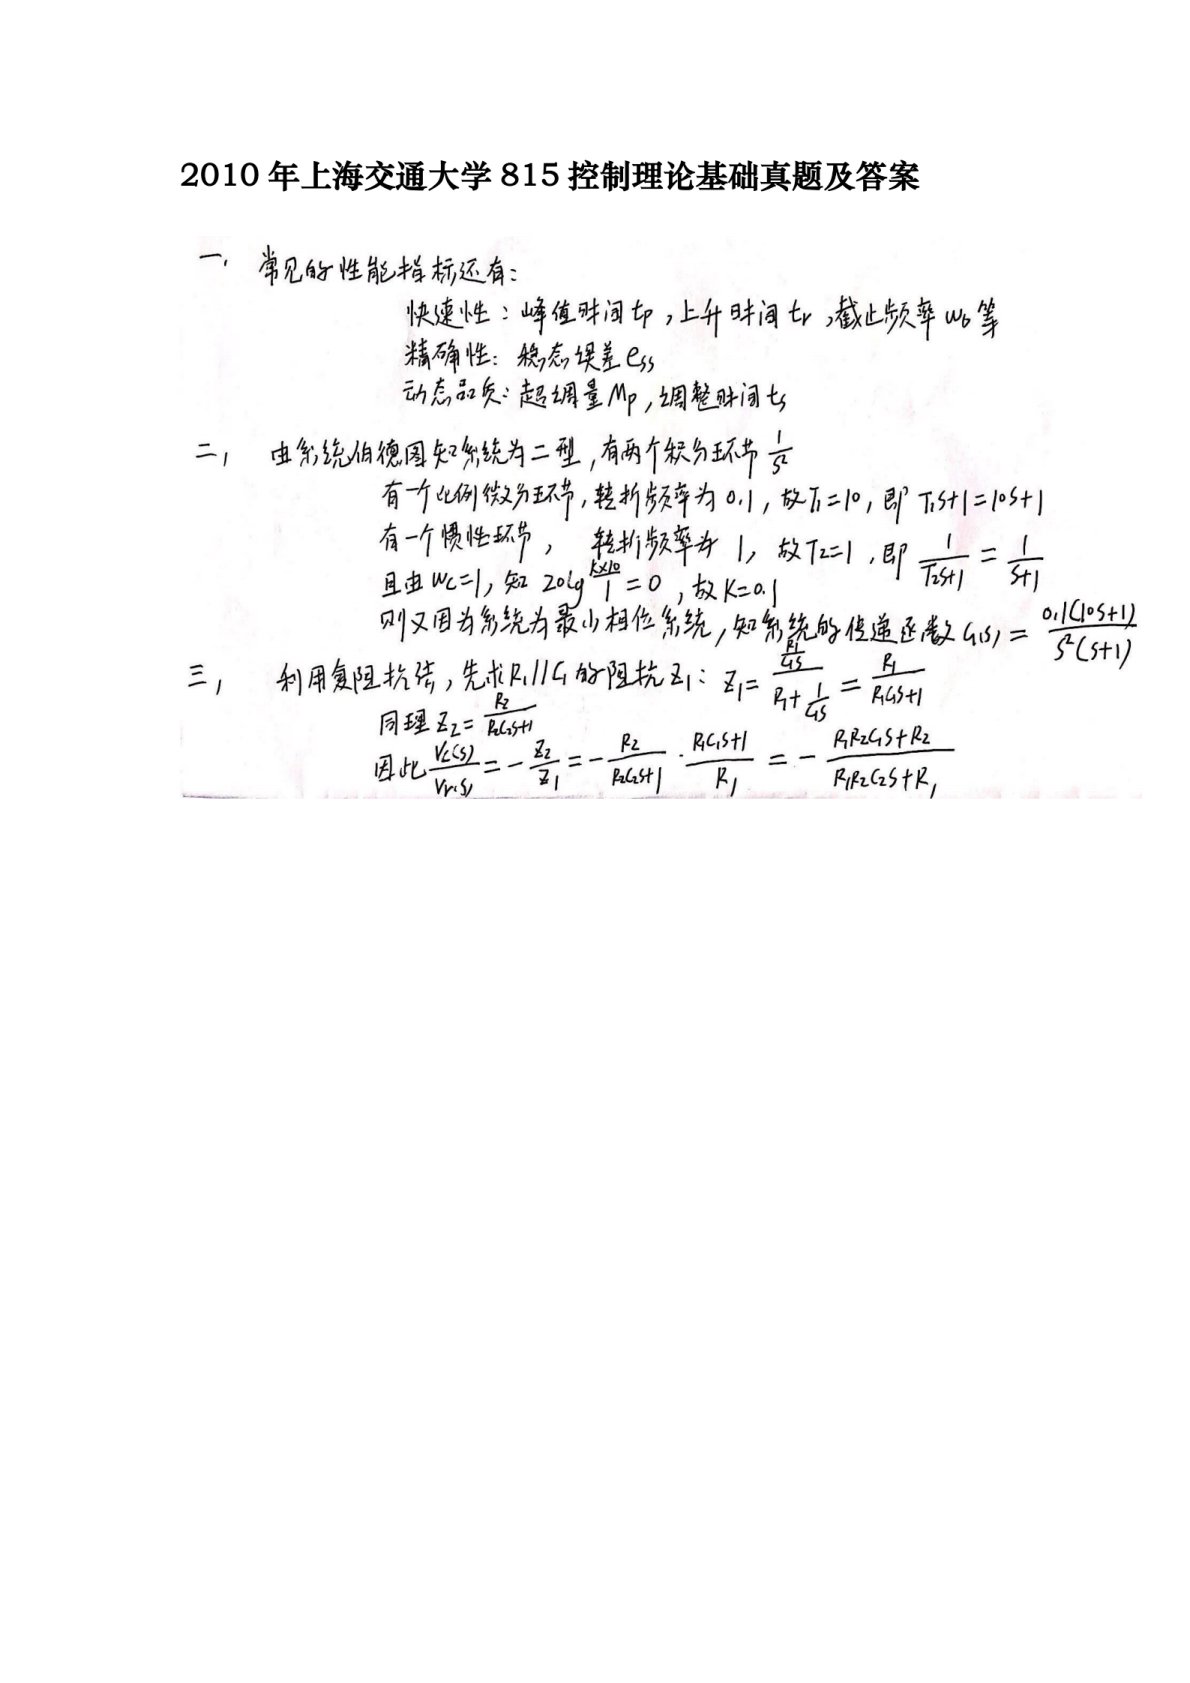 2010 年上海交通大学 815 控制理论基础真题及答案
一、常见的性能指标还有:
快速性：峰值时间 tp，上升时间 tr，截止频率 ωb 等
精确性：稳态误差 ess
动态品质：超调量 Mp，调整时间 ts
二、由系统伯德图知系统为二型，有两个积分环节 1/s²
有一个比例微分环节，转折频率为 0.1，故T₁=10，即 T₁s+1=10s+1
有一个惯性环节， 转折频率为 1，故T₂=1，即 1/(T₂s+1) = 1/(s+1)
且由 ωc=1，知 20lg (K×10)/1 = 0，故 K=0.1
则又因为系统为最小相位系统，知系统的传递函数 G(s) = 0.1(10s+1)/(s²(s+1))
三、利用复阻抗法，先求R₁//C₁的阻抗Z₁：Z₁= (R₁/(C₁s))/(R₁+1/(C₁s)) = R₁/(R₁C₁s+1)
同理 Z₂= R₂/(R₂C₂s+1)
因此 Vc(s)/Vr(s) = - Z₂/Z₁ = - R₂/(R₂C₂s+1) · (R₁C₁s+1)/R₁ = - (R₁R₂C₁s+R₂)/(R₁R₂C₂s+R₁)